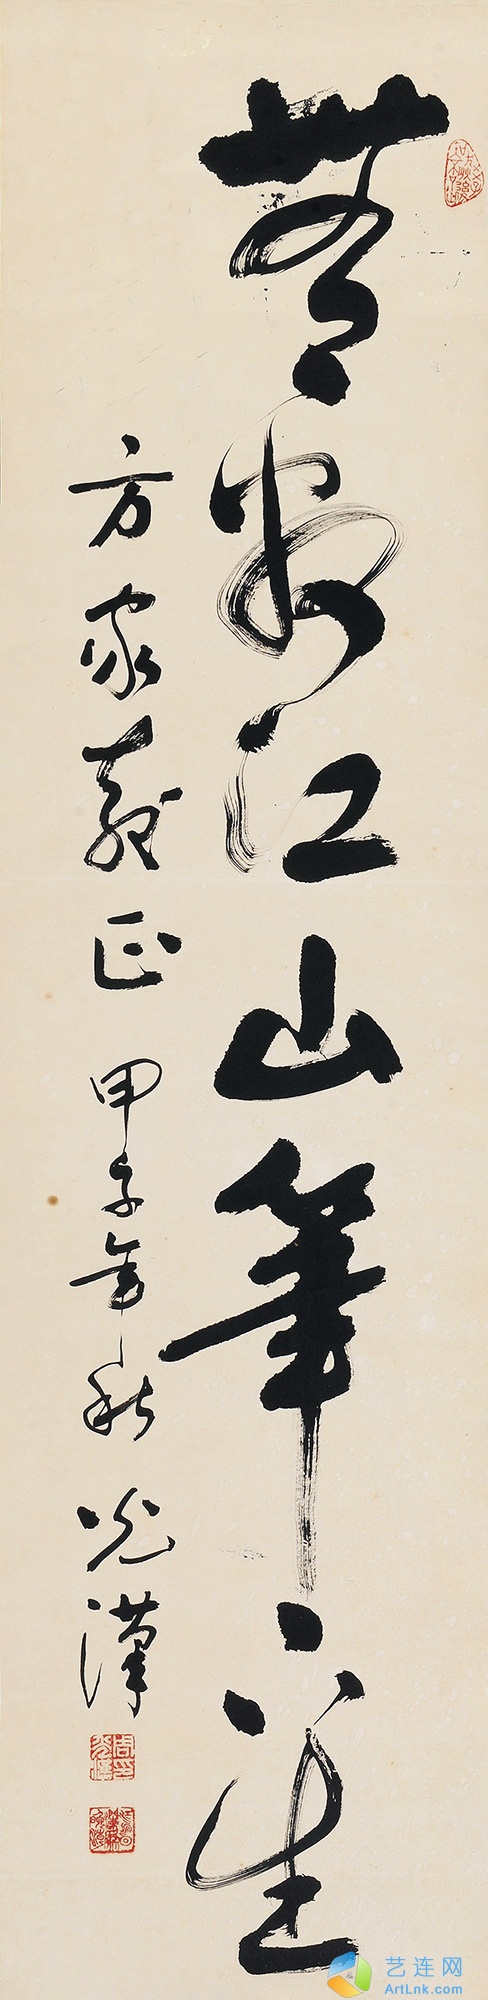 無數江山筆下生
方家正 甲子年秋 光漢
艺连网
ArtLnk.com